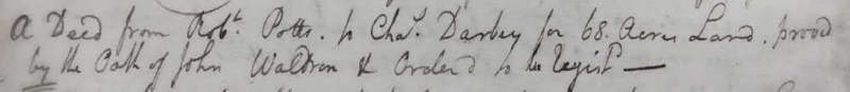 A Deed from Robt. Potts. to Chas. Darbey for 68. Acres Land. provd
by the Oath of John Waldron & Orderd to be Registd —